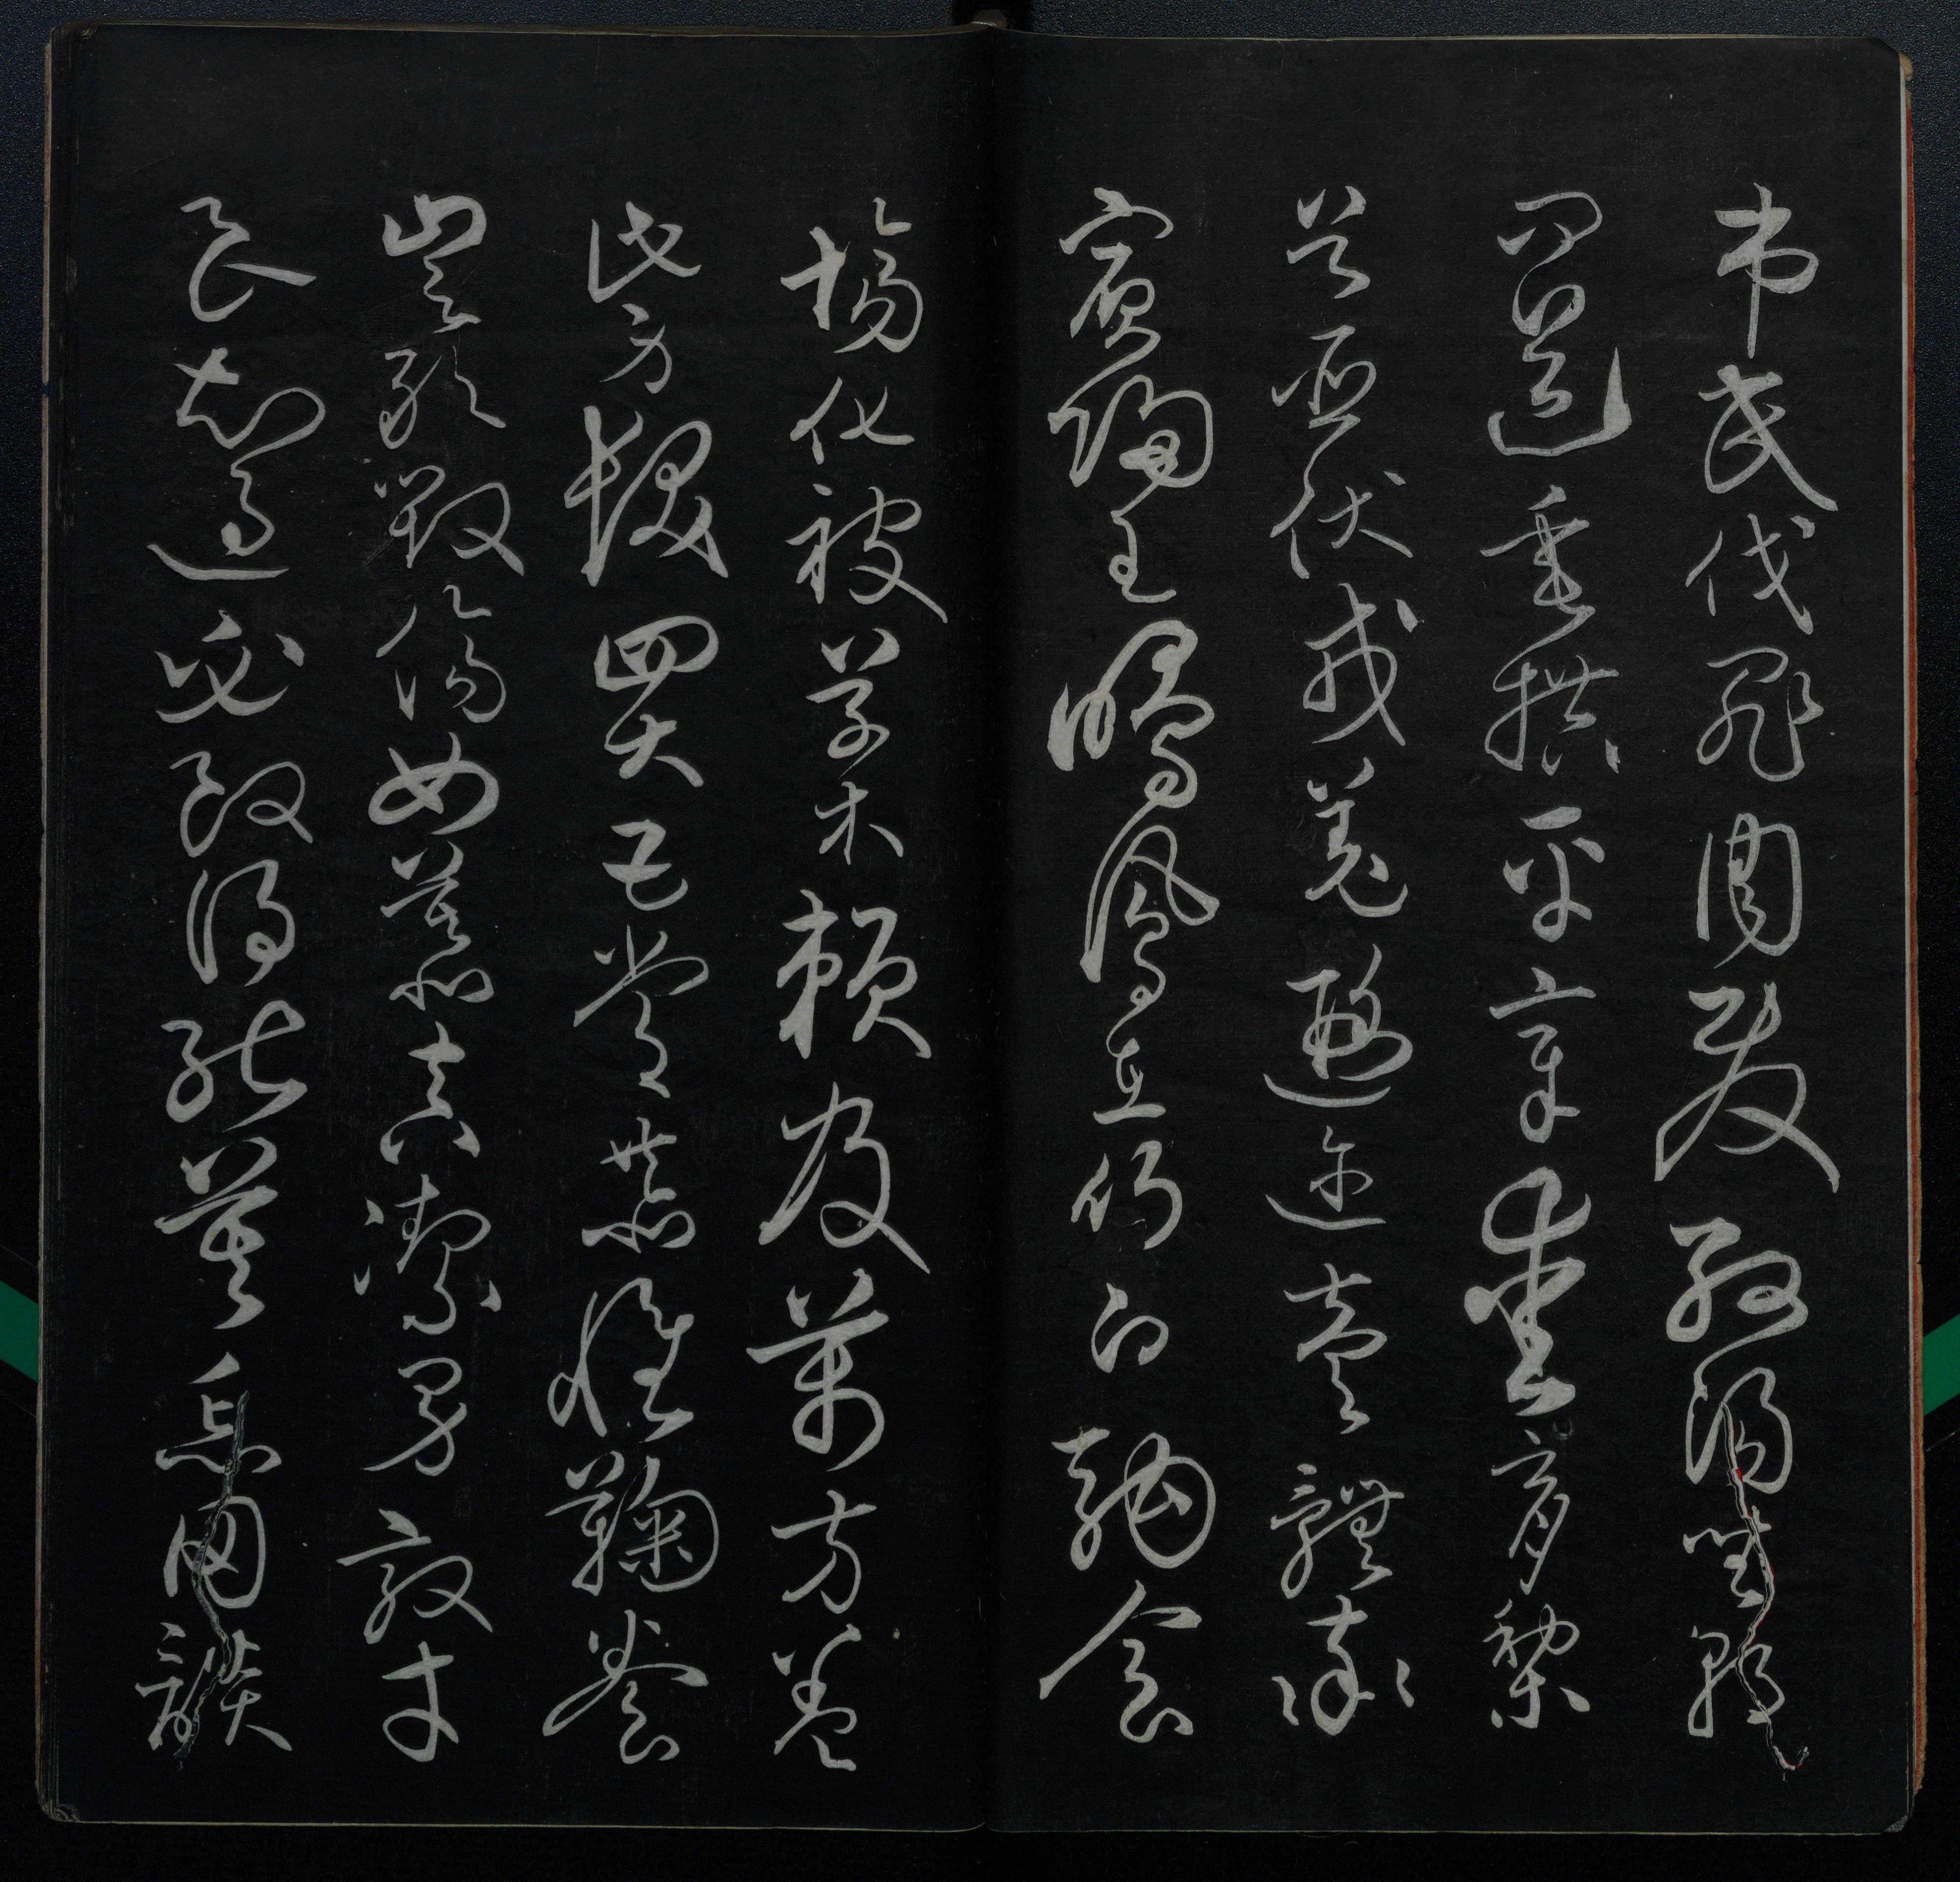 弔民伐罪周發殷湯坐朝
問道垂拱平章愛育黎
首臣伏戎羌遐邇壹體率
賓歸王鳴鳳在竹白駒食
場化被草木賴及萬方蓋
此身髮四大五常恭惟鞠養
豈敢毀傷女慕貞潔男效才
良知過必改得能莫忘罔談